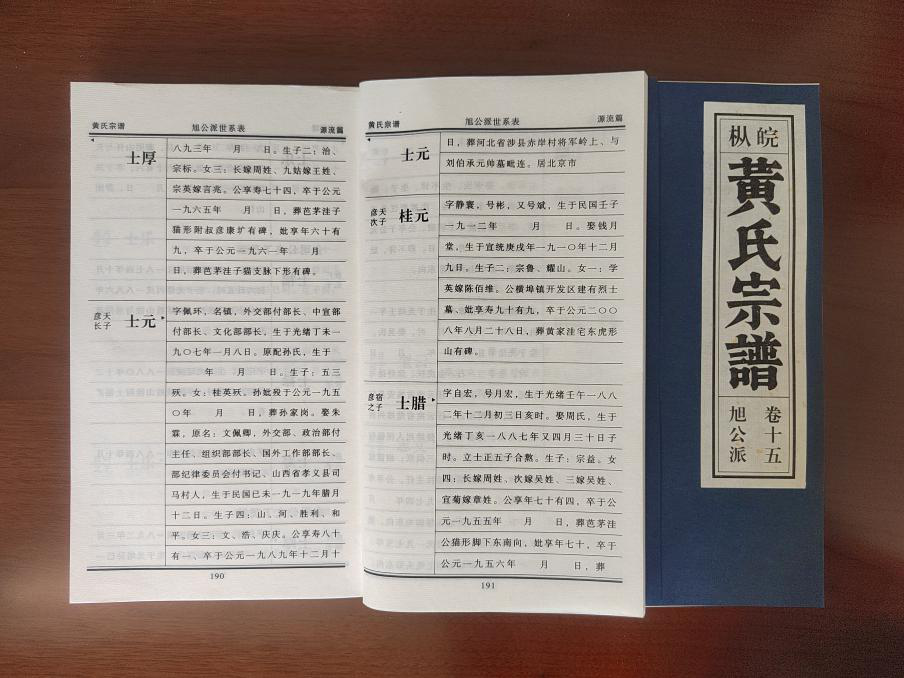 黄氏宗谱 旭公派世系表 源流篇
士厚
八九三年 月 日。生子二：治、
宗标。女三：长嫁周姓、九姑嫁王姓、
宗英嫁言兆。公享寿七十四，卒于公元
一九六五年 月 日，葬芭茅洼子
猫形附叔彦康圹有碑，妣享年六十有
九，卒于公元一九六一年 月
日，葬芭茅洼子猫支脉下形有碑。
彦天长子
士元
字佩环，名镇，外交部付部长、中宣部
付部长、文化部部长，生于光绪丁未一
九〇七年一月八日。原配孙氏，生于
年 月 日。生子：五三
殁。女：桂英殀。孙妣殁于公元一九五
〇年 月 日，葬孙家岗。娶朱
霖，原名：文佩卿，外交部、政治部付
主任、组织部部长、国外工作部部长、
部纪律委员会付书记、山西省孝义县司
马村人，生于民国已未一九一九年腊月
十二日。生子四：山、河、胜利、和
平。女三：文、浩、庆庆。公享寿八十
有一，卒于公元一九八九年十二月十
190
黄氏宗谱 旭公派世系表 源流篇
士元
日，葬河北省涉县赤岸村将军岭上、与
刘伯承元帅墓毗连。居北京市
彦天次子
桂元
字静寰，号彬，又号斌，生于民国壬子
一九一二年 月 日。娶钱月
堂，生于宣统庚戌年一九一〇年十二月
九日。生子二：宗鲁、耀山。女一：学
英嫁陈伯维。公横埠镇开发区建有烈士
墓、妣享寿九十有九，卒于公元二〇〇
八年八月二十八日，葬黄家洼宅东虎形
山有碑。
彦宿之子
士腊
字自宏，号月宏，生于光绪壬午一八八
二年十二月初三日亥时。娶周氏，生于
光绪丁亥一八八七年又四月三十日子
时。立士正五子合熬。生子：宗益。女
四：长嫁周姓、次嫁吴姓、三嫁吴姓、
宜菊嫁章姓。公享年七十有四，卒于公
元一九五五年 月 日，葬芭茅洼
公猫形脚下东南向，妣享年七十，卒于
公元一九五六年 月 日，葬
191
皖枞
黄氏宗譜
卷十五
旭公派